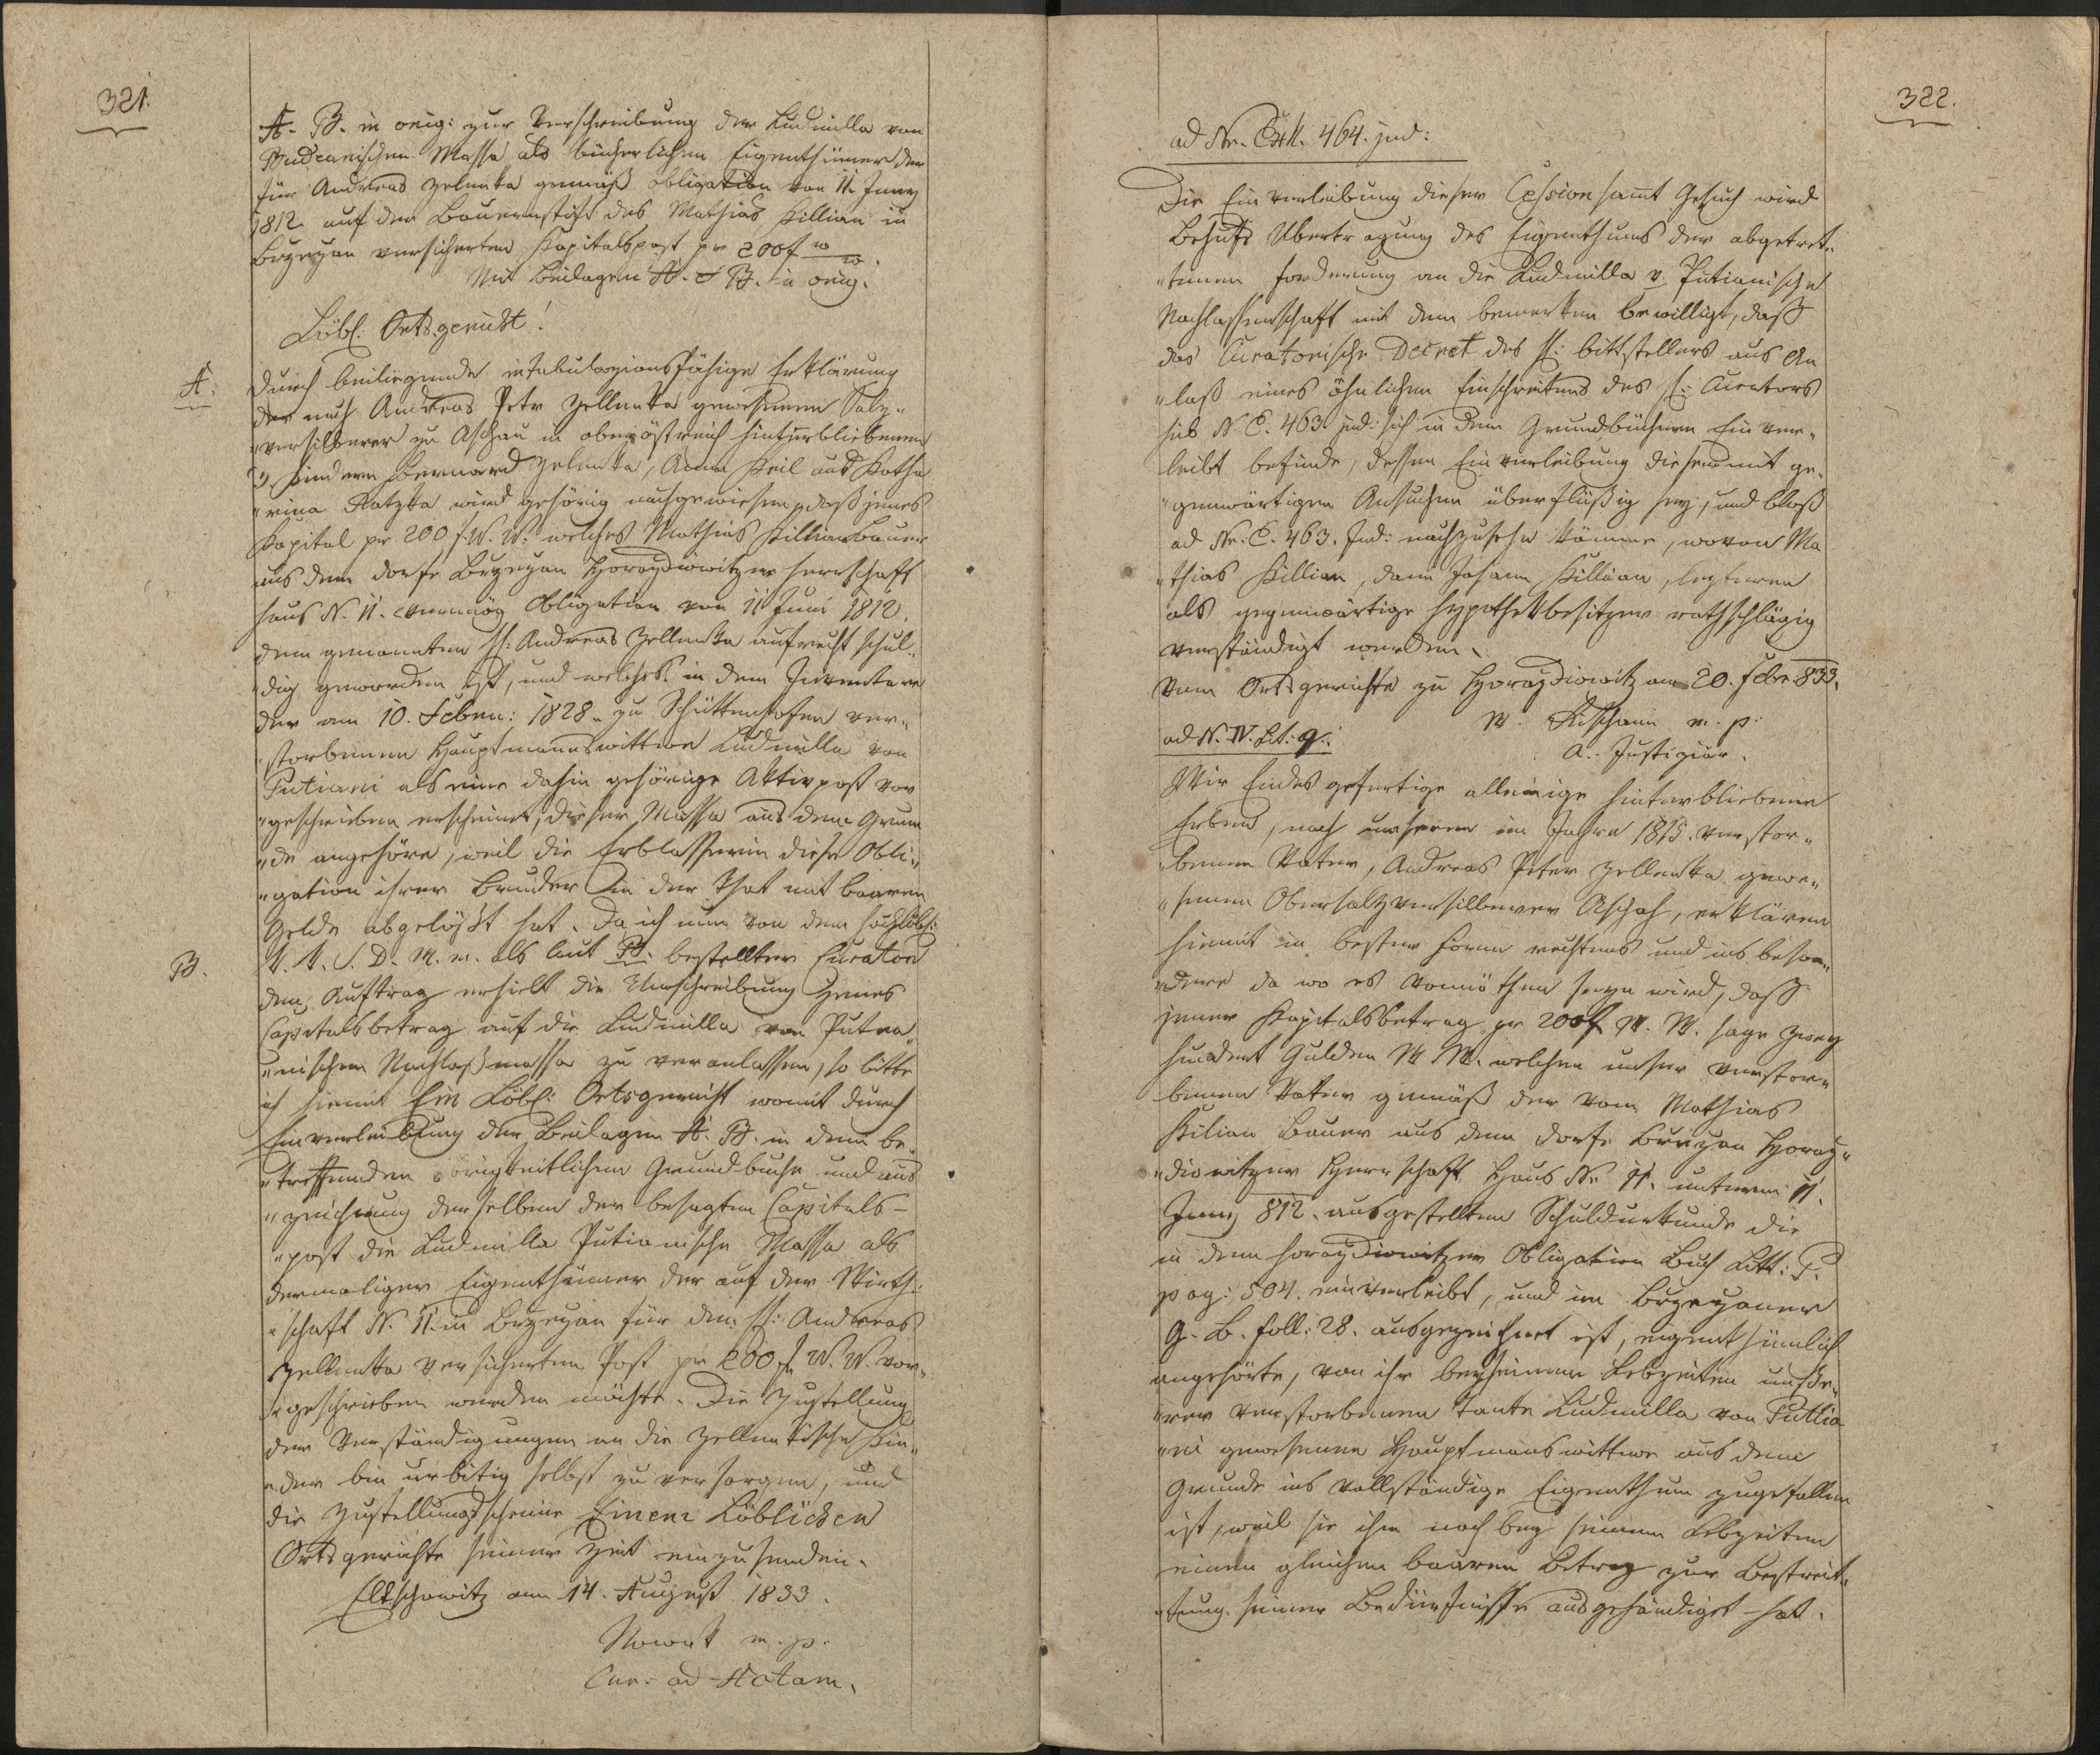 321.
A. B. in orig: zur Verschreibung der Ludmilla von
Pudianischen Massa als bücherlichen Eigenthümer der
für Andreas Zelenka gemäß obligation von 11. Juny
1812 auf dem Bauernstift des Mathias Killian in
Bezegan versicherten Kapitalspost pr 200 f
Mit Beilagen A. & B. in orig.
Löbl: Ortsgericht!
A.
Durch beiliegende intabulazionsfähige Erklärung
der nach Andreas Petr Zellenka gewesenen Salz„
„versilberer zu Aschau in oberöstreich hinterbliebenen
3 Kindern Bernard Zelenka, Anna Keil und Katha
„rina Ratzka wird gehörig nachgewiesen, daß jenes
Kapital pr 200 f. W. W. welches Mathias Killian Bauer
aus dem dorfe Bezegan Horazdiowitzer Herrschaft
Haus N. 11. vermög Obligation von 11 Juni 1812.
dem genannten H: Andreas Zellenka aufrecht schul„
„dig geworden ist, und welches in dem Inventare
der am 10. Feber: 1828. zu Schüttenhofen ver„
„storbenen Hauptmannswittwe Ludmilla von
Putiani als eine dahin gehörige Aktivpost vor
„geschrieben erscheint, dieser Massa aus dem Grun
„de angehöre, weil die Erblasserin diese Obli„
„gation ihrem Bruder in der That mit baarem
Gelde abgelößt hat. Da ich nun von dem hochlöbl:
B.
K. K. J. D. M. m. als laut B. bestellter Curator
den Auftrag erhielt die Umschreibung jenes
Capitalsbetrag auf die Ludmilla von Putia„
„nischen Nachlaßmassa zu veranlassen, so bitte
ich hiemit Ein Löbl: Ortsgericht womit durch
Einverleibung der Beilagen A. B. in dem be„
„treffenden obrigkeitlichen Grundbuche und aus
„zeichnung derselben der besagten Capitals-
„post die Ludmilla Putianische Massa als
dermaliger Eigenthümer der auf der Wirth„
„schaft N. 11. in Bezegan für den H: Andreas
Zellenka versicherten Post pr 200 f W. W. vor„
„geschrieben werden möchte. Die Zustellung
der Verständigungen an die Zellenkische Kin„
„der bin urbitig selbst zu versorgen, und
die Zustellungsscheine Einem Löblichen
Ortsgerichte seiner Zeit einzusenden.
Elkschowitz am 14. August 1833.
Nowak m. p.
Cur. ad Actam.
322.
ad Nr. Exh. 464. jud:
Die Einverleibung dieser Cession samt Gesuch wird
Behufs Übertragung des Eigenthums der abgetret„
„tenen forderung an die Ludmilla v. Putianische
Nachlassenschaft mit dem bemerken bewilligt, daß
das Curatorische Decret des H: bittstellers aus An
„laß eines ähnlichen Einschreitens des H: Curators
sub N. E. 463 jud: sich in den Grundbüchern Einver„
leibt befinde, dessen Einverleibung diesem mit ge„
„genwärtigen Ansuchen überflüßig sey, und bloß
ad Nr. E. 463. Jud: nachzusehn komme, wovon Ma
„thias Killian, dann Johann Killian, lezterer
als gegenwärtige Hypothekbesitzer rathschlägig
verständigt werden.
Vom Ortsgerichte zu Horazdiowitz am 20. Febr. 833.
m. p.
A. Justiziär.
ad N. IV. Lit: q.
Wir Endesgefertige alleinige hinterbliebene
Erben, nach unserem im Jahre 1815. verstor„
„benen Vater, Andreas Peter Zellenka gewe„
„senen Obersalzversilberer Aschach, erklären
hiemit in bester form rechtens und ins beson„
„dere da wo es vonnöthen seyn wird, daß
jener Kapitalsbetrag pr 200 f W. W. sage zwey
hundert Gulden W W. welchen unser verstor„
benen Vater gemäß der vom Mathias
Kilian Bauer aus dem dorfe Bezegan Horaz„
„diowitzer Herrschaft Haus Nr 11. unterm 11.
Juny 812. ausgestellten Schuldurkunde die
in dem horazdiowitzer Obligation Buch Litt: P.
pag: 504. einverleibt, und im Bezeganer
G. B. foll: 28. ausgezeichnet ist, eigenthümlich
angehörte, von ihr bey seinen Lebzeiten unse„
„rer verstorbenen Tante Ludmilla von Puttia
„ni gewesenen Hauptmanswittwe aus dem
Grunde ins vollständige Eigenthum zugefallen
ist, weil sie ihm noch bey seinen Lebzeiten
einen gleichen baaren Betrag zur Bestreit„
„tung seiner Bedürfnisse ausgehändiget hat.